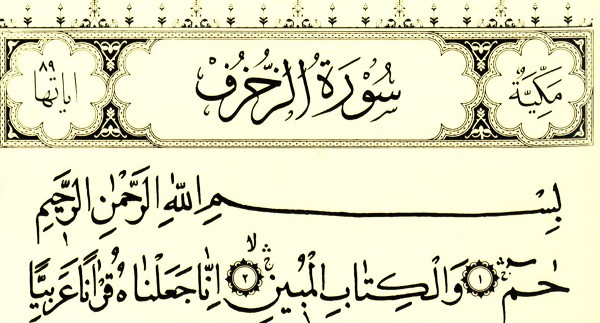 مَكِّيَّةٌ سُورَةُ الزُّخْرُفِ اٰيَاتُهَا ٨٩
بِسْمِ اللّٰهِ الرَّحْمٰنِ الرَّحٖيمِ
حٰمٓ ۚ ﴿١﴾ وَالْكِتَابِ الْمُبٖينِ ۙ ﴿٢﴾ اِنَّا جَعَلْنَاهُ قُرْاٰنًا عَرَبِيًّا